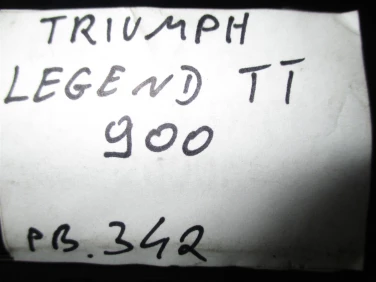 TRIUMPH
LEGEND TT
900
PB.342